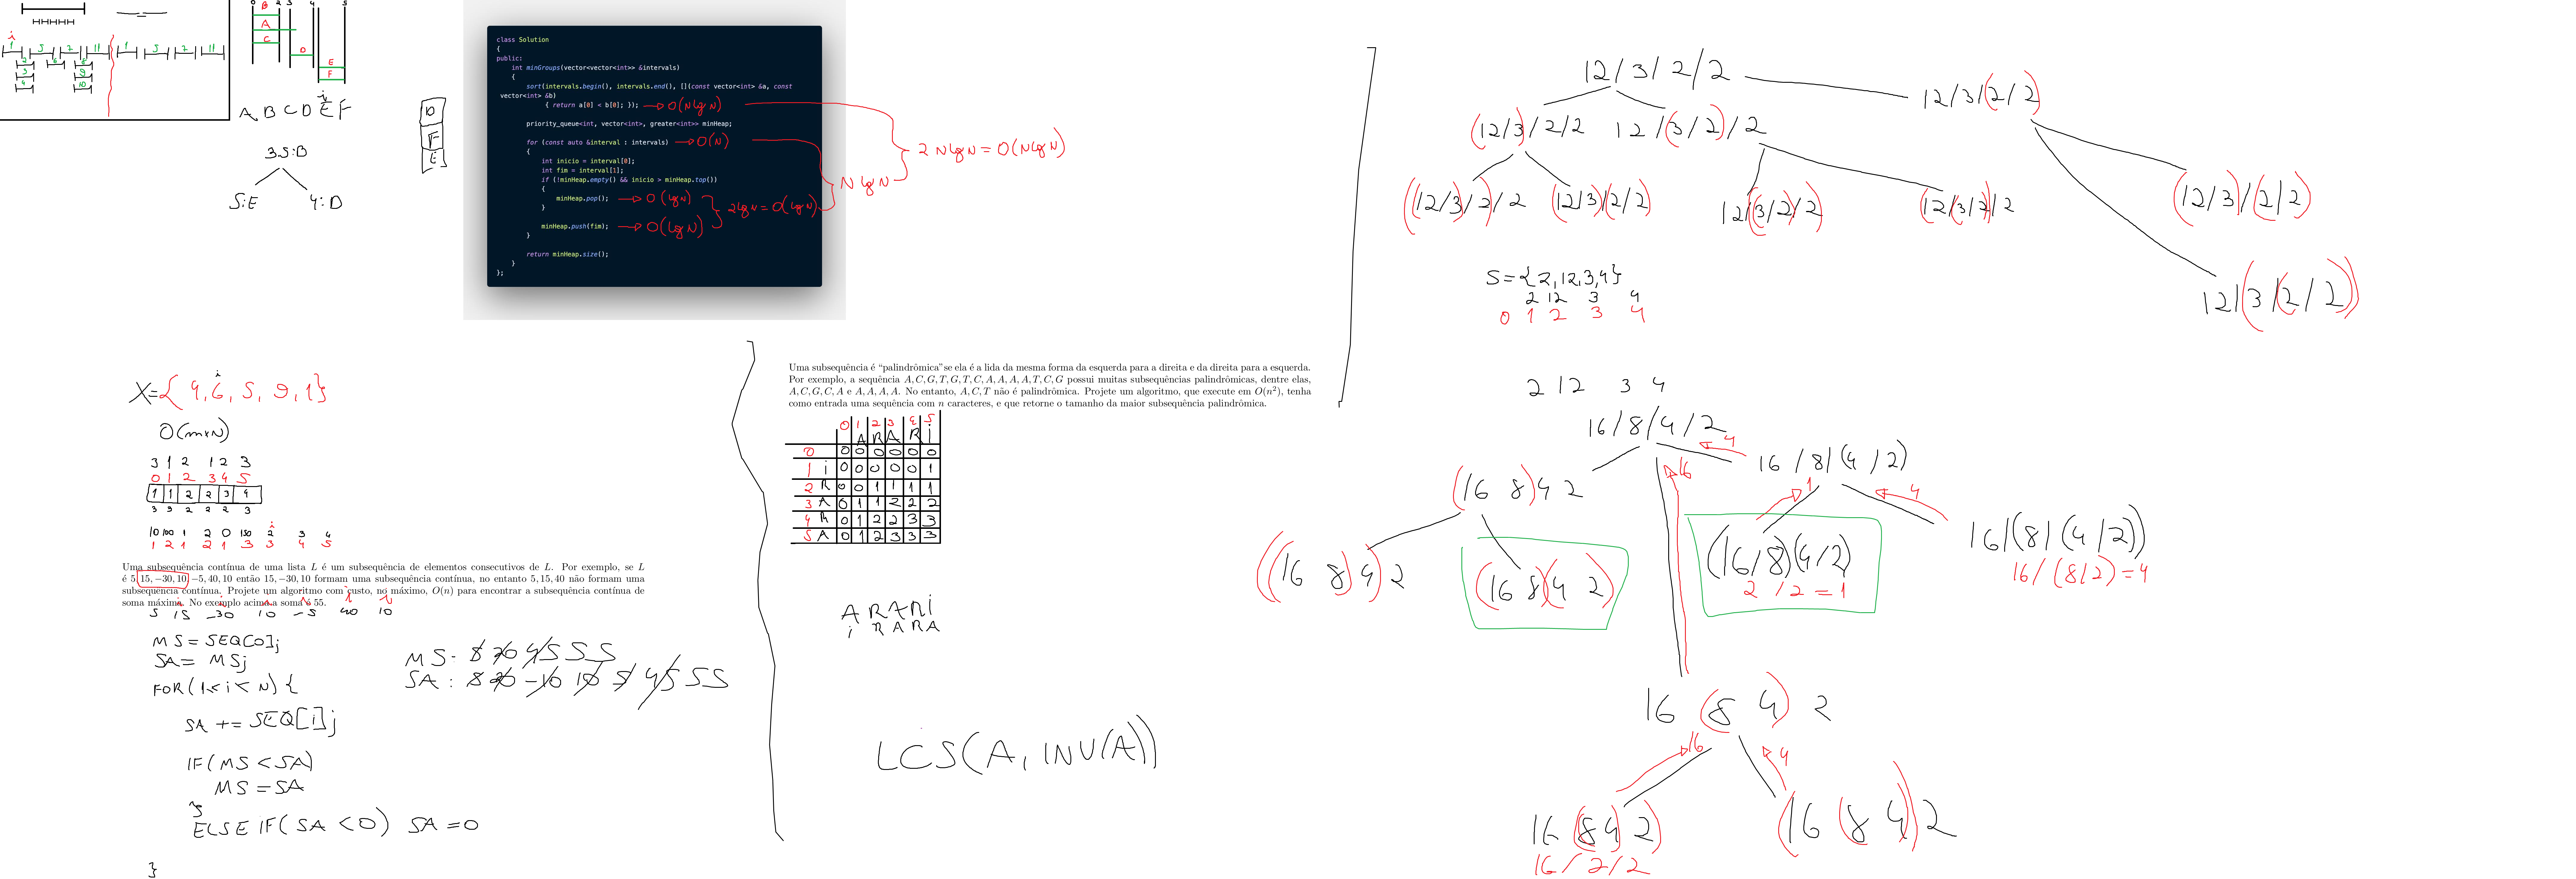 B
A
C
D
E
F
A B C D E F
35:B
5:E
4:D
D
F
E
class Solution
{
public:
int minGroups(vector<vector<int>> &intervals)
{
sort(intervals.begin(), intervals.end(), [](const vector<int> &a, const
vector<int> &b)
{ return a[0] < b[0]; }); → O(NlgN)
priority_queue<int, vector<int>, greater<int>> minHeap;
for (const auto &interval : intervals) → O(N)
{
int inicio = interval[0];
int fim = interval[1];
if (!minHeap.empty() && inicio > minHeap.top())
{
minHeap.pop(); → O(lgN)
}
minHeap.push(fim); → O(lgN)
}
return minHeap.size();
}
};
2lgN = O(lgN)
NlgN
2 NlgN = O(NlgN)
12/3/2/2
12/3/(2/2)
(12/3)/2/2
12/(3/2)/2
((12/3)/2)/2
(12/3)/(2/2)
12/((3/2)/2)
(12/(3/2))/2
(12/3)/(2/2)
12/(3/(2/2))
S={2,12,3,4}
2 12 3 4
0 1 2 3 4
X={4,6,5,9,1}
i
O(m×N)
3 1 2 1 2 3
0 1 2 3 4 5
1 1 2 2 3 4
3 3 2 2 2 3
10 100 1 2 0 150 2 3 4
1 2 1 2 1 3 3 4 5
Uma subsequência contínua de uma lista L é um subsequência de elementos consecutivos de L. Por exemplo, se L
é 5, 15, −30, 10, −5, 40, 10 então 15, −30, 10 formam uma subsequência contínua, no entanto 5, 15, 40 não formam uma
subsequência contínua. Projete um algoritmo com custo, no máximo, O(n) para encontrar a subsequência contínua de
soma máxima. No exemplo acima a soma é 55.
5 15 -30 10 -5 40 10
MS = SEQ[0];
SA = MS;
FOR(1<i<N){
SA += SEQ[i];
IF(MS<SA)
MS=SA
ELSE IF(SA<0) SA=0
}
MS: 5 20 45 55
SA: 5 20 -10 10 5 45 55
Uma subsequência é “palindrômica”se ela é a lida da mesma forma da esquerda para a direita e da direita para a esquerda.
Por exemplo, a sequência A, C, G, T, G, T, C, A, A, A, A, T, C, G possui muitas subsequências palindrômicas, dentre elas,
A, C, G, C, A e A, A, A, A. No entanto, A, C, T não é palindrômica. Projete um algoritmo, que execute em O(n²), tenha
como entrada uma sequência com n caracteres, e que retorne o tamanho da maior subsequência palindrômica.
0 1 2 3 4 5
A R A R i
0 0 0 0 0 0 0
1 i 0 0 0 0 0 1
2 R 0 0 1 1 1 1
3 A 0 1 1 2 2 2
4 R 0 1 2 2 3 3
5 A 0 1 2 3 3 3
A RARi
i RARA
LCS(A, INV(A))
2 12 3 4
16/8/4/2
4
16
16/8/(4/2)
(16 8)4 2
1
4
((16 8)4)2
(16 8)(4 2)
(16/8)(4/2)
2/2=1
16/(8/(4/2))
16/(8/2)=4
16 (8 4) 2
16
4
16((8 4)2)
16/2/2
(16(8 4))2